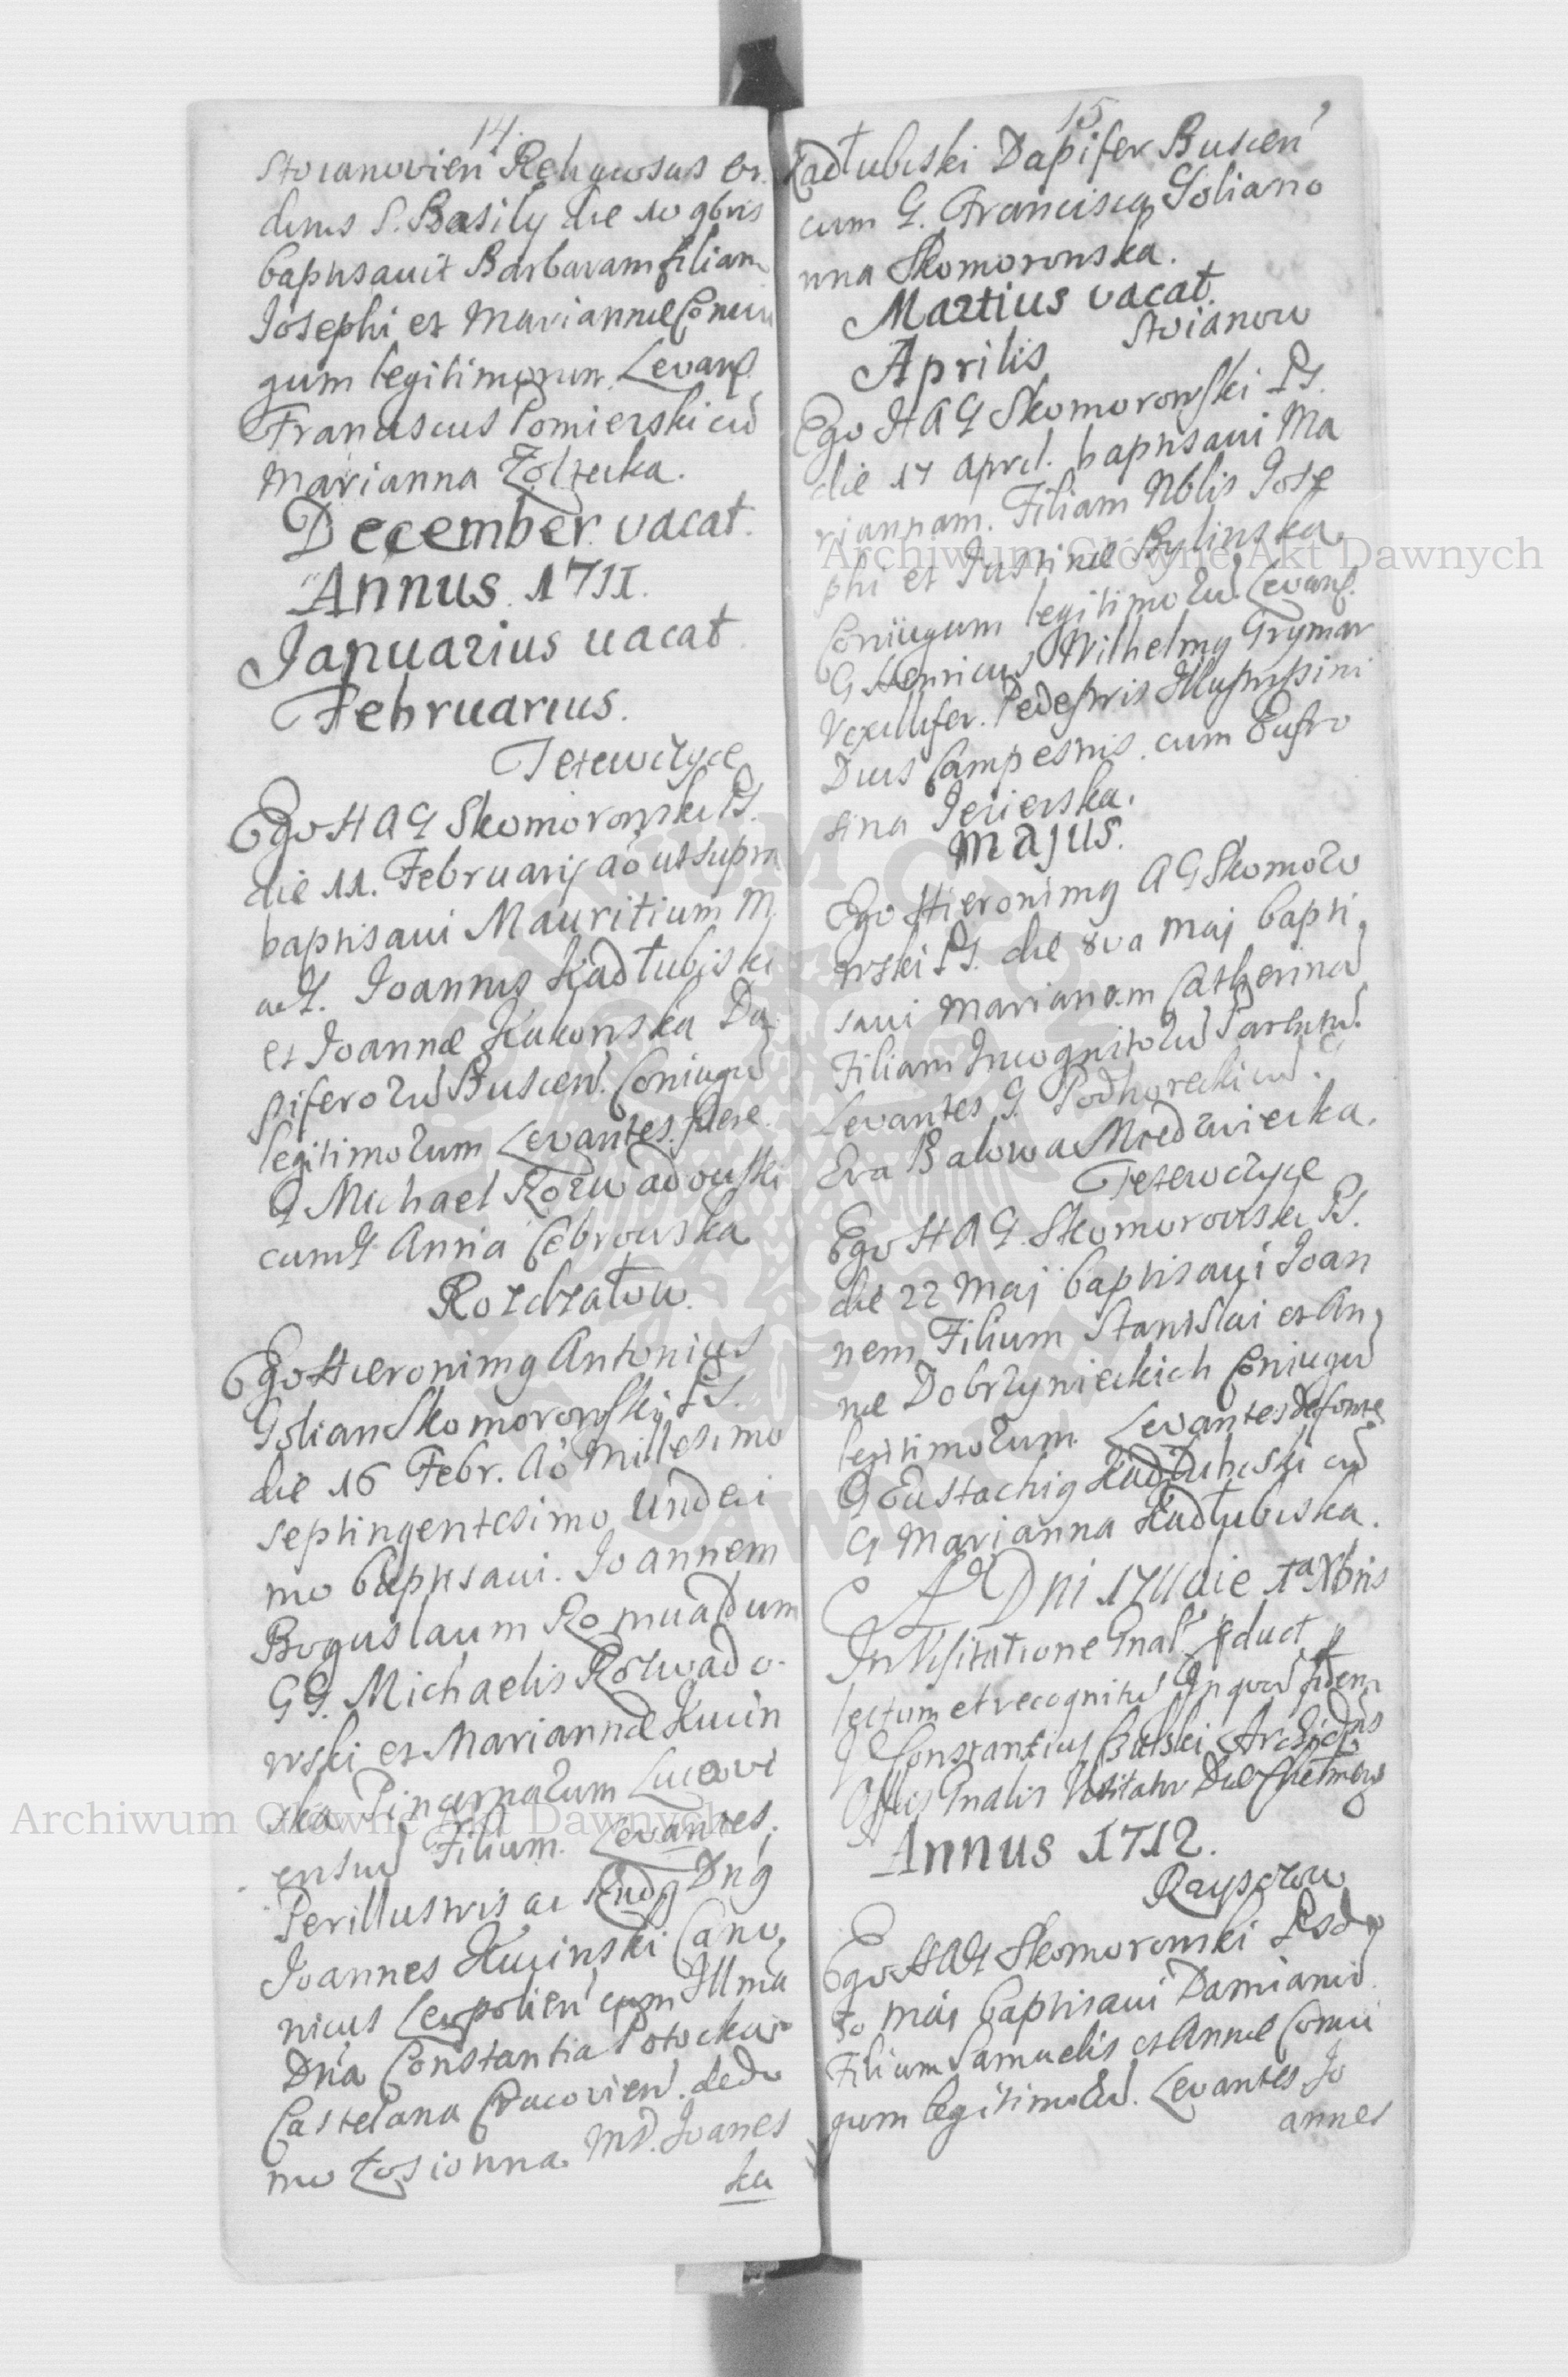 14.
Stoianovien Religiosus or
dinis S. Basilij die 10 9bris
baptisavit Barbaram filiam
Josephi et Mariannae Coniu
gum legitimorum. Levans.
Franciscus Pomierski cu
Marianna Zoltecka.
December. vacat.
Annus. 1711.
Januarius vacat.
Februarius.
Tetewczyce
Ego H A G Skomorowski PS.
die 11. Februarij ao ut supra
baptisavi Mauritium M
ac G. Joannis Kadłubiski
et Joannae Kukonska Da
piferorum Buscen. Coniugu
legitimorum Levantes fuere
G Michael Rozwadowski
cum G Anna Cebrowska
Rozdzałow.
Ego Hieronimg Antonius
Golian Skomorowski PS.
die 16 Febr. Ao Millesimo
septingentesimo Undeci
mo baptisavi. Joannem
Boguslaum Romualdum
GG. Michaelis Rozwado-
wski et Mariannae Kucin
ska Pincernarum Luceovi
ensiu Filium. Levantes,
Perillustris ac Rndg Dng
Joannes Kucinski Cano,
nicus Leopolien cum Illma
Dna Constantia Potocka
Castelana Cracovien. de do
mo Łosionna. MD. Joanes
ka
15
Kadłubiski Dapifer Buscen
cum G. Francisca Goliano
wna Skomoronska.
Martius vacat.
Stoianow
Aprilis
Ego H A G Skomorowski PS.
die 17 April. baptisavi Ma
riannam. Filiam Nblis Jose
phi et Justinae Bylinska
Coniugum legitimoru Levans.
G Henricus Wilhelmg Grymar
Vexillifer. Pedestris Illustrissimi
Ducis Campestris. cum Eufro
sina Jezierska.
Majus.
Ego Hieronimg A G Skomoro
wski PS. die 8va Maj bapti
savi Marianam Catherina
Filiam Incognitoru Parentu.
Levantes G. Podhorecki cu.
Eva Balowa Miedzwiecka.
Tetewczyce
Ego H A G. Skomorowski PS.
die 22 Maj baptisavi Joan
nem Filium Stanislai et An
nae Dobrzynieckich Coniugu
legitimorum. Levantes de fonte
G Eustachig Kadłubiski cu
G Marianna Kadłubiska.
Ao Dni 1711 die 1a Xbris
In Visitatione Gnali pduct p
lectum et recognitu In quoru fidem
Constantius Bielski Archid
Offlis Gnalis Visitator Diae Chelmens
Annus 1712.
Rayszow
Ego H A G Skomoronski
30 Maij baptisavi Damianu.
Filium Samuelis et Annae Coniu
gum legitimoru. Levantes Jo
annes
Archiwum Główne Akt Dawnych
Archiwum Główne Akt Dawnych